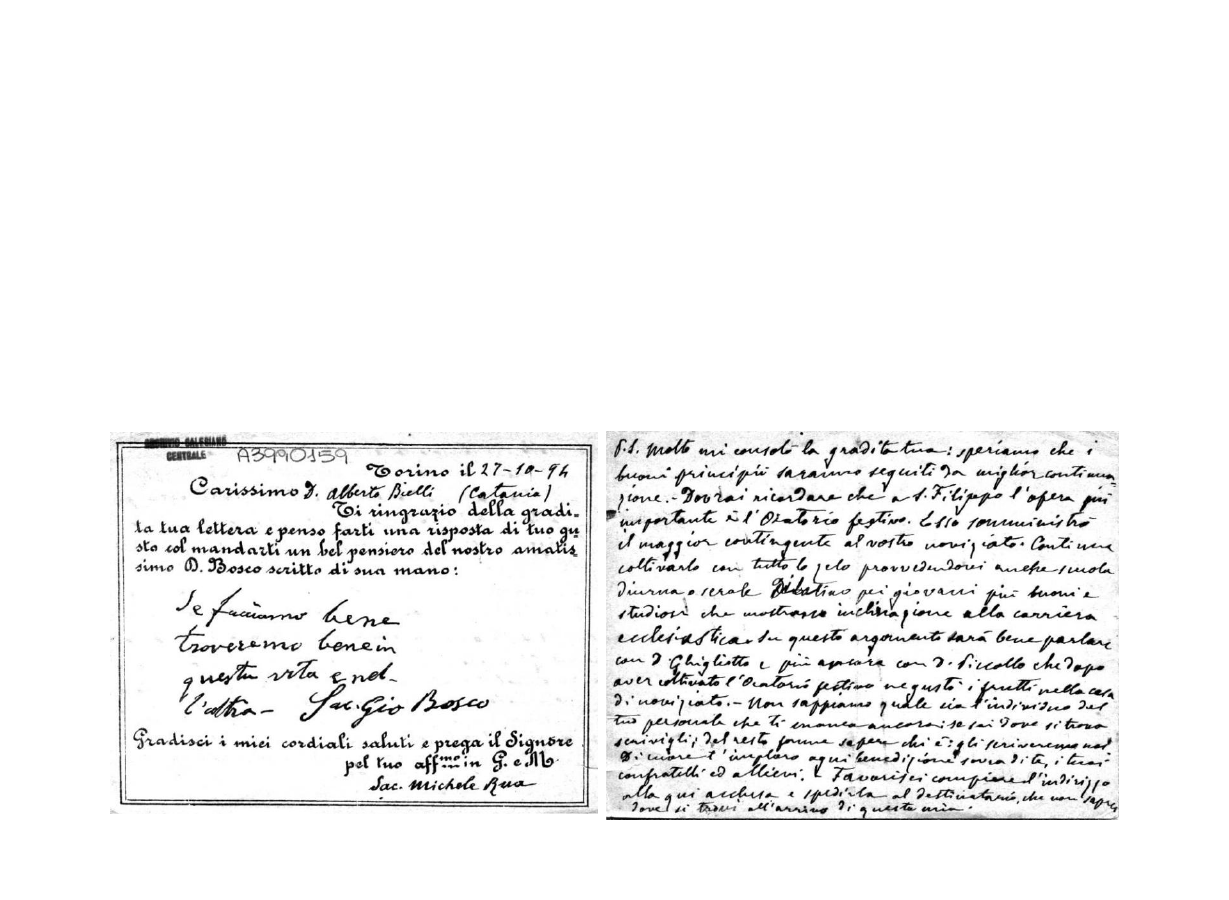 ARCHIVIO SALESIANO
CENTRALE
A3990159
Torino il 27-10-94
Carissimo D. Alberto Bielli (Catania)
Ti ringrazio della gradi-
ta tua lettera e penso farti una risposta di tuo gu-
sto col mandarti un bel pensiero del nostro amatis-
simo D. Bosco scritto di sua mano:
Se facciamo bene
troveremo bene in
questa vita e nel-
l'altra - Sac. Gio Bosco
Gradisci i miei cordiali saluti e prega il Signore
pel tuo aff.mo in G. e M.
Sac. Michele Rua
P.S. Molto mi consolò la gradita tua: speriamo che i
buoni principii saranno seguiti da miglior continua-
zione. - Dovrai ricordare che a S. Filippo l'opera più
importante è l'Oratorio festivo. Esso somministrò
il maggior contingente al vostro noviziato. Continua
coltivarlo con tutto lo zelo provvedendovi anche scuola
diurna o serale di latino pei giovani più buoni e
studiosi che mostrano inclinazione alla carriera
ecclesiastica. Su questo argomento sarà bene parlare
con D. Ghigliotto e più ancora con D. Piccollo che dopo
aver coltivato l'Oratorio festivo ne gustò i frutti nella casa
di noviziato. - Non sappiamo quale sia l'individuo del
tuo personale che ti manca ancora: se sai dove si trova
scrivigli; del resto fanne sapere chi è: gli scriveremo noi.
Di cuore t'imploro ogni benedizione sovra di te, i tuoi
confratelli ed allievi. Favorisci compiere l'indirizzo
alla qui acclusa e spedirla al destinatario, che non saprei
dove si trovi all'arrivo di questa mia.